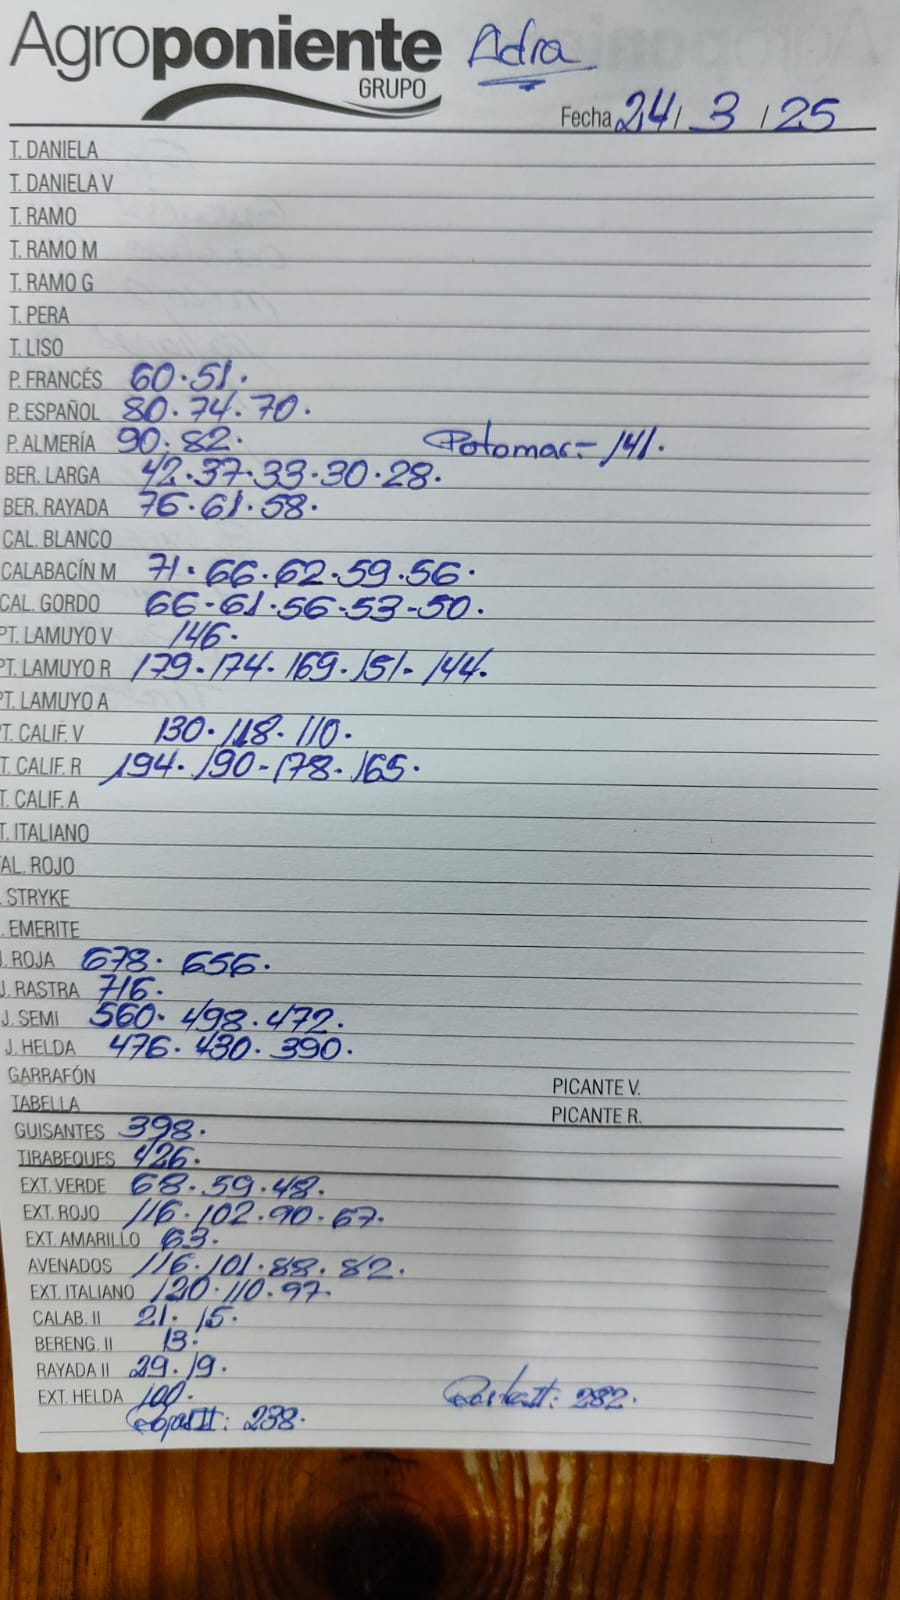 Agroponiente Adra
GRUPO
Fecha 24/ 3 / 25
T. DANIELA
T. DANIELA V
T. RAMO
T. RAMO M
T. RAMO G
T. PERA
T. LISO
P. FRANCÉS 60·51·
P. ESPAÑOL 80·74·70·
P. ALMERÍA 90·82· Potomac:- 141·
BER. LARGA 42·37·33·30·28·
BER. RAYADA 76·61·58·
CAL. BLANCO
CALABACÍN M 71·66·62·59·56·
CAL. GORDO 66-61·56-53-50·
PT. LAMUYO V 146·
PT. LAMUYO R 179·174·169·151-144·
PT. LAMUYO A
PT. CALIF. V 130·118·110·
T. CALIF. R 194·190-178·165·
T. CALIF. A
T. ITALIANO
AL. ROJO
. STRYKE
. EMERITE
J. ROJA 678· 656·
J. RASTRA 716·
J. SEMI 560· 498·472·
J. HELDA 476·430·390·
GARRAFÓN PICANTE V.
TABELLA PICANTE R.
GUISANTES 398·
TIRABEQUES 426·
EXT. VERDE 68·59·48·
EXT. ROJO 116·102·90·67·
EXT. AMARILLO 63·
AVENADOS 116·101·88·82·
EXT. ITALIANO 120·110·97·
CALAB. II 21· 15·
BERENG. II 13·
RAYADA II 29·19·
EXT. HELDA 100· II: 282·
II: 238·